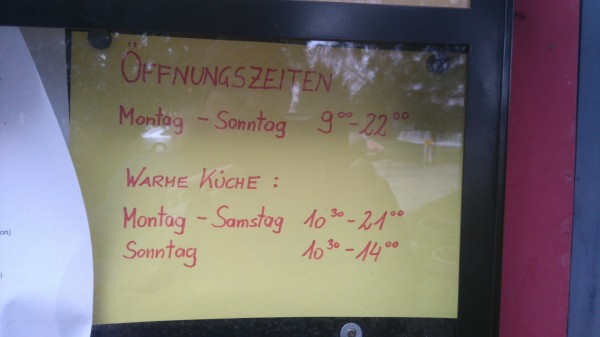 ÖFFNUNGSZEITEN
Montag - Sonntag 9⁰⁰-22⁰⁰
WARME KÜCHE :
Montag - Samstag 10³⁰-21⁰⁰
Sonntag 10³⁰-14⁰⁰